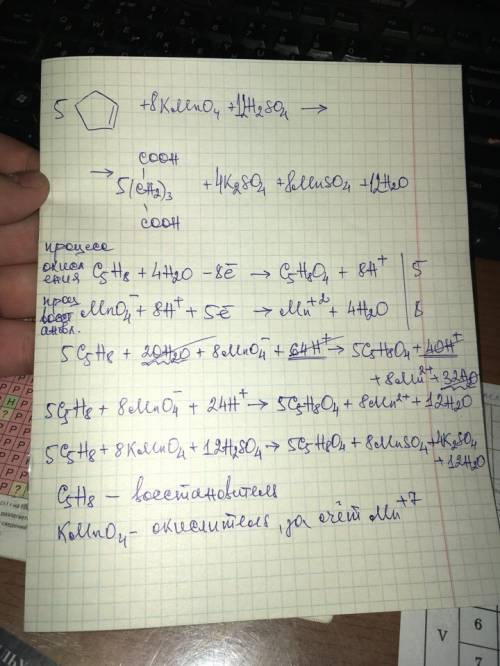 5 + 8KMnO₄ + 12H₂SO₄ →
COOH
→ 5(CH₂)₃ + 4K₂SO₄ + 8MnSO₄ + 12H₂O
COOH
процесс
окисл
ения C₅H₈ + 4H₂O - 8ē → C₅H₈O₄ + 8H⁺ | 5
проц
восст
ановл. MnO₄⁻ + 8H⁺ + 5ē → Mn⁺² + 4H₂O | 8
5C₅H₈ + 20H₂O + 8MnO₄⁻ + 64H⁺ → 5C₅H₈O₄ + 40H⁺
+ 8Mn²⁺ + 32H₂O
5C₅H₈ + 8MnO₄⁻ + 24H⁺ → 5C₅H₈O₄ + 8Mn²⁺ + 12H₂O
5C₅H₈ + 8KMnO₄ + 12H₂SO₄ → 5C₅H₈O₄ + 8MnSO₄ + 4K₂SO₄
+ 12H₂O
C₅H₈ – восстановитель
KMnO₄ – окислитель, за счёт Mn⁺⁷
V
6
7